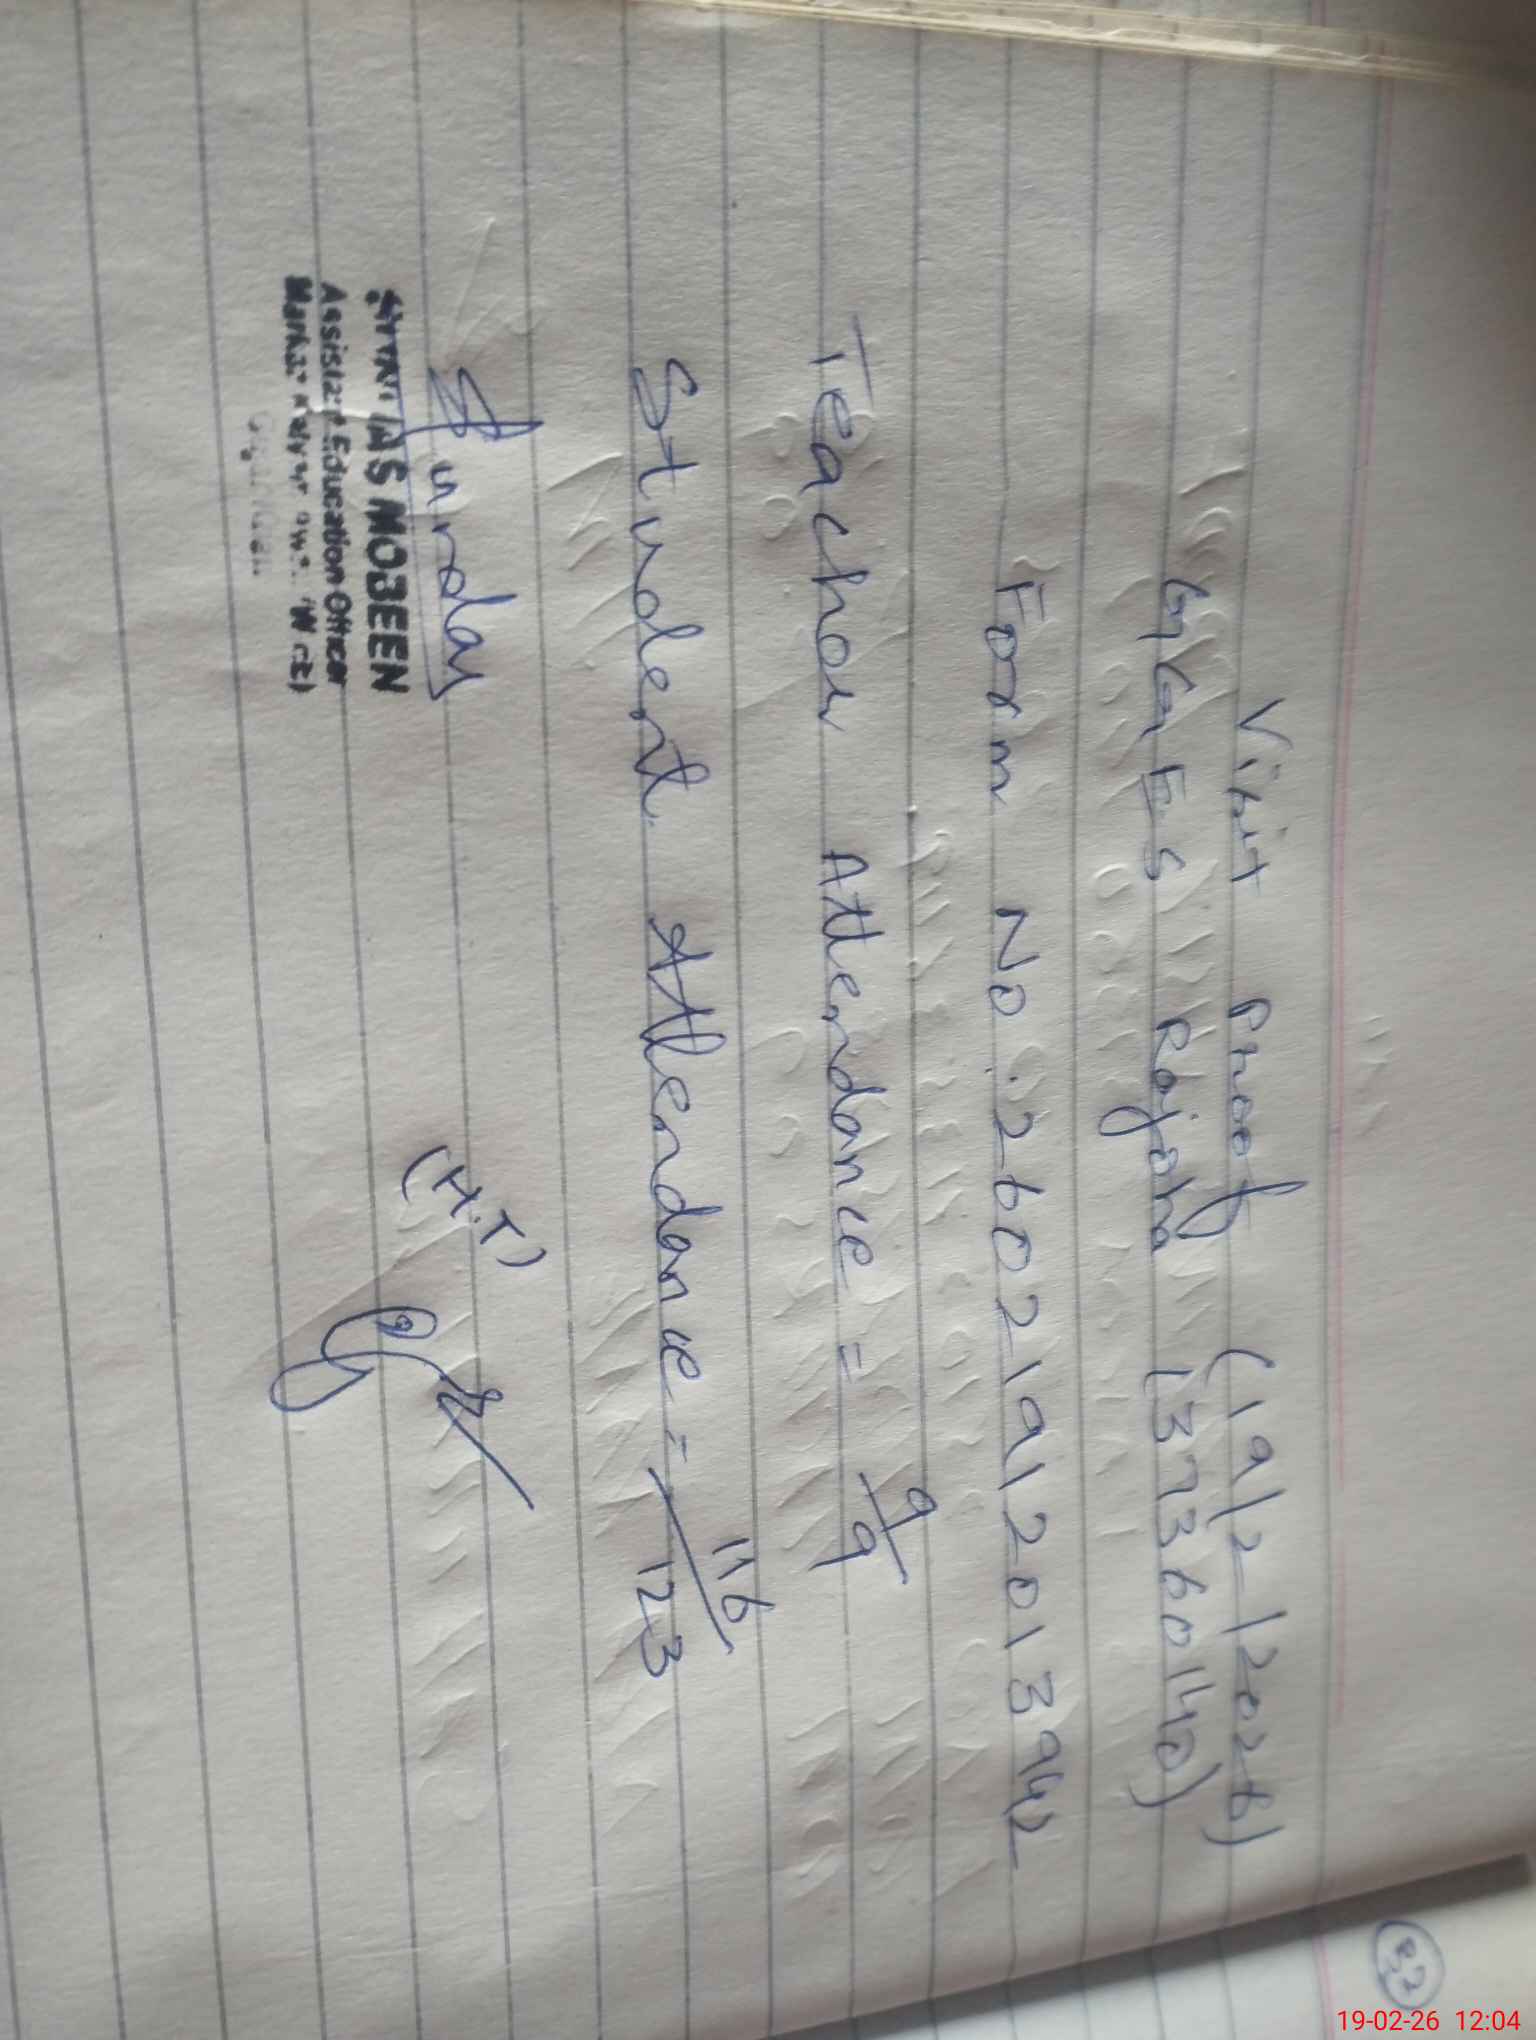 Visit Proof (19/2/2026)
GGES Rajoha (37360140)
Form No. 26021912013942
Teacher Attendance = 9/9
Student Attendance = 116/123
(H.T)
MOBEEN
Assistant Education Officer
Markaz
32
19-02-26 12:04